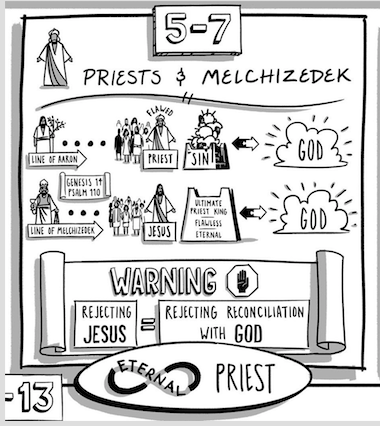 5-7
PRIESTS & MELCHIZEDEK
FLAWED
LINE OF AARON
PRIEST
SIN
GOD
GENESIS 14
PSALM 110
LINE OF MELCHIZEDEK
JESUS
ULTIMATE
PRIEST KING
FLAWLESS
ETERNAL
GOD
WARNING
REJECTING
JESUS
=
REJECTING RECONCILIATION
WITH GOD
ETERNAL
PRIEST
-13